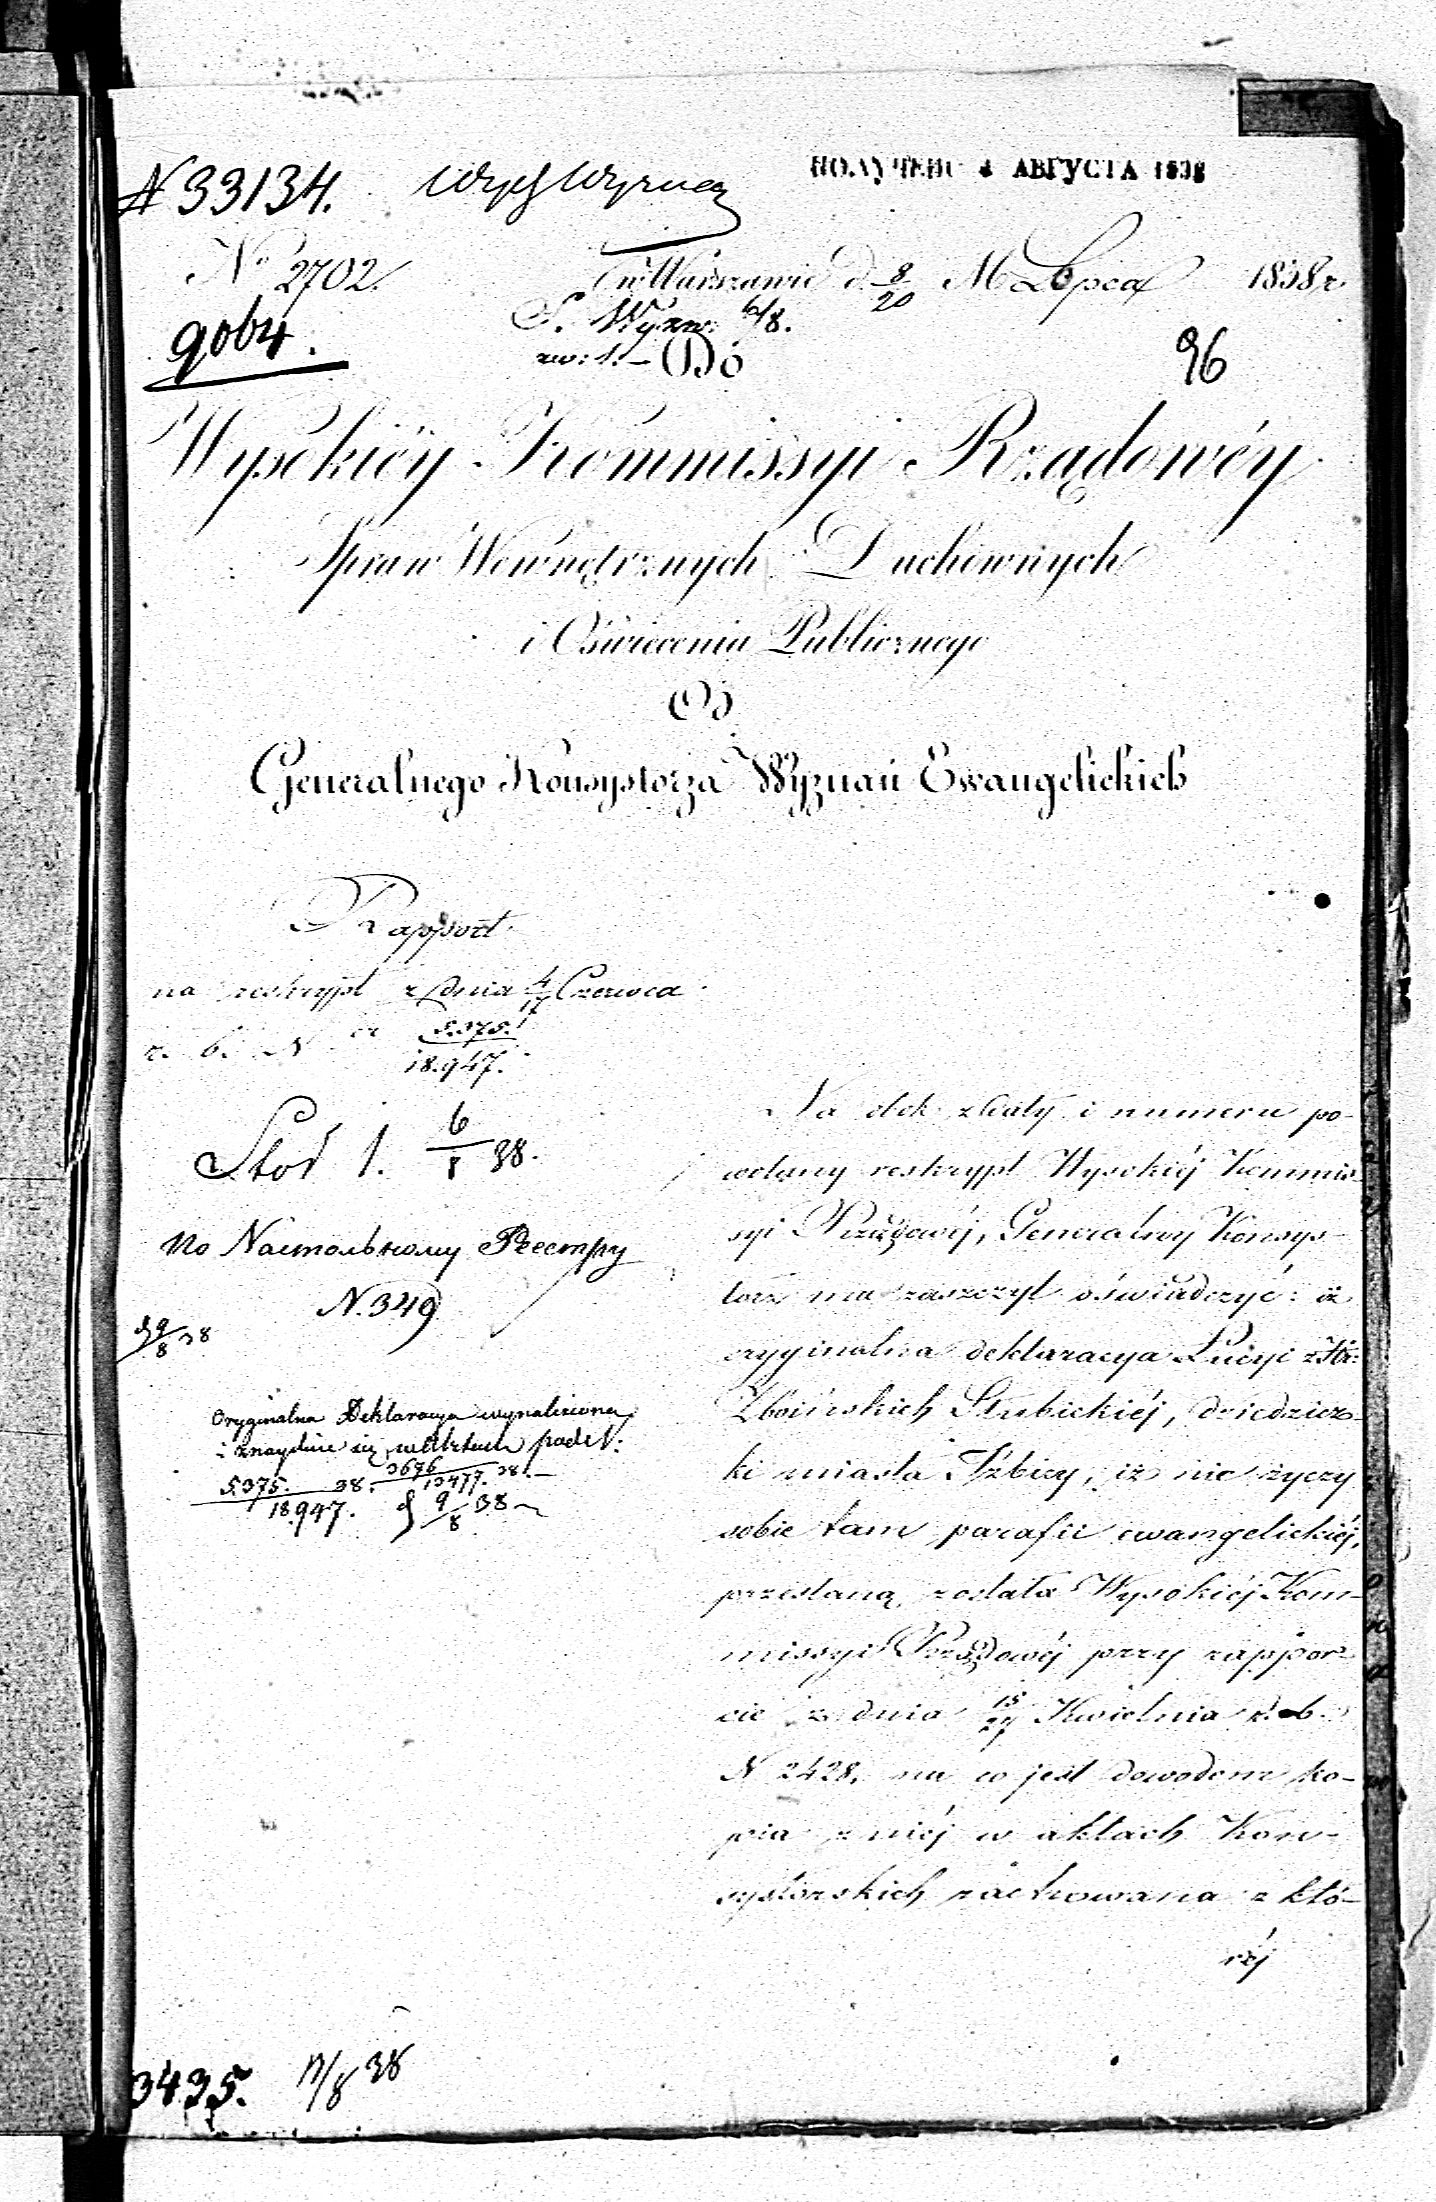 N 33134.
ПОЛУЧЕНО 4 АВГУСТА 1838
No 2702.
w Warszawie d. 8/20 M. Lipca 1838 r.
9064.
S. Wyzn: 6/8.
zw: 1. – Do
96
Wysokiéy Kommissyi Rządowéy
Spraw Wewnętrznych Duchownych
i Oświecenia Publicznego
Od
Generalnego Konsystorza Wyznań Ewangelickich
Rapport
na reskrypt z dnia 4/17 Czerwca
r. b. N 5375./18.947.
Stoł 1. 6/8 38.
По Настольному Реестру
N. 349
9/8 38
Oryginalna Deklaracya wynaleziona
i znayduie się w aktach pode N:
5375./18.947. 38. 3696/13477. 38. –
9/8 38
Na dek z daty i numeru po-
wołany reskrypt Wysokiéj Kommis-
syi Rządowéj, Generalny Konsys-
torz ma zaszczyt oświadczyć: iż
oryginalna deklaracya Łucyi z Hr:
Zboińskich Słubickiéj, dziedzicz-
ki miasta Izbicy, iż nie życzy
sobie tam parafii ewangelickiéj,
przesłaną została Wysokiéj Kom-
missyi Rządowéj przy rappor-
cie z dnia 15/27 Kwietnia r. b.
N 2428, na co jest dowodem ko-
pia z niéj w aktach Kon-
systorskich zachowana z któ-
réj
3435. 11/8 38